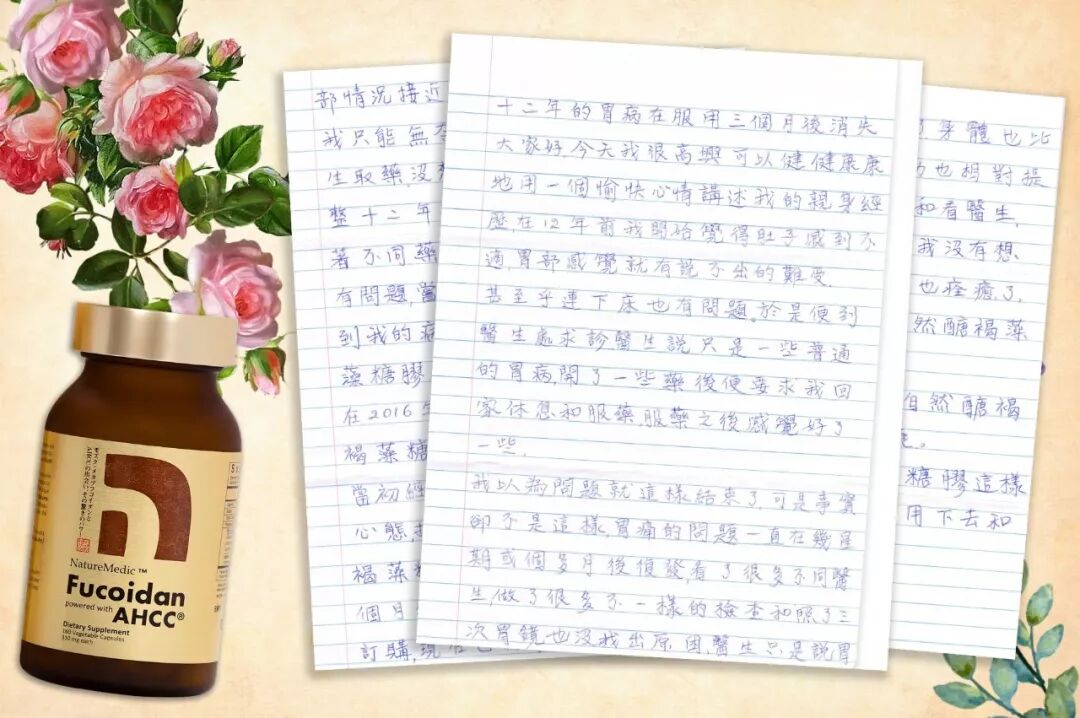 部情況接近
我只能無
生取藥,沒
整十二年
著不同藥
有問題,當
到我的病
藻糖膠
在2016
褐藻糖
當初經
心態
褐藻
個月
訂購,現
十二年的胃病在服用三個月後消失
大家好,今天我很高興可以健健康康
地用一個愉快心情講述我的親身經
歷,在12年前我開始覺得肚子感到不
適,胃部感覺就有説不出的難受.
甚至乎連下床也有問題。於是便到
醫生處求診醫生説只是一些普通
的胃病,開了一些藥後便要求我回
家休息和服藥,服藥之後感覺好了
一些.
我以為問題就這樣結束了,可是事實
卻不是這樣,胃痛的問題一直在幾星
期或個多月後復發看了很多不同醫
生,做了很多不一樣的檢查和照了三
次胃鏡也沒找出原因,醫生只是說胃
身體也比
也相對提
和看醫生,
我沒有想
也痊癒了,
然醣褐藻
自然醣褐
糖膠這樣
用下去和
NatureMedic™
Fucoidan
powered with
AHCC®
Dietary Supplement
160 Vegetable Capsules
330 mg each